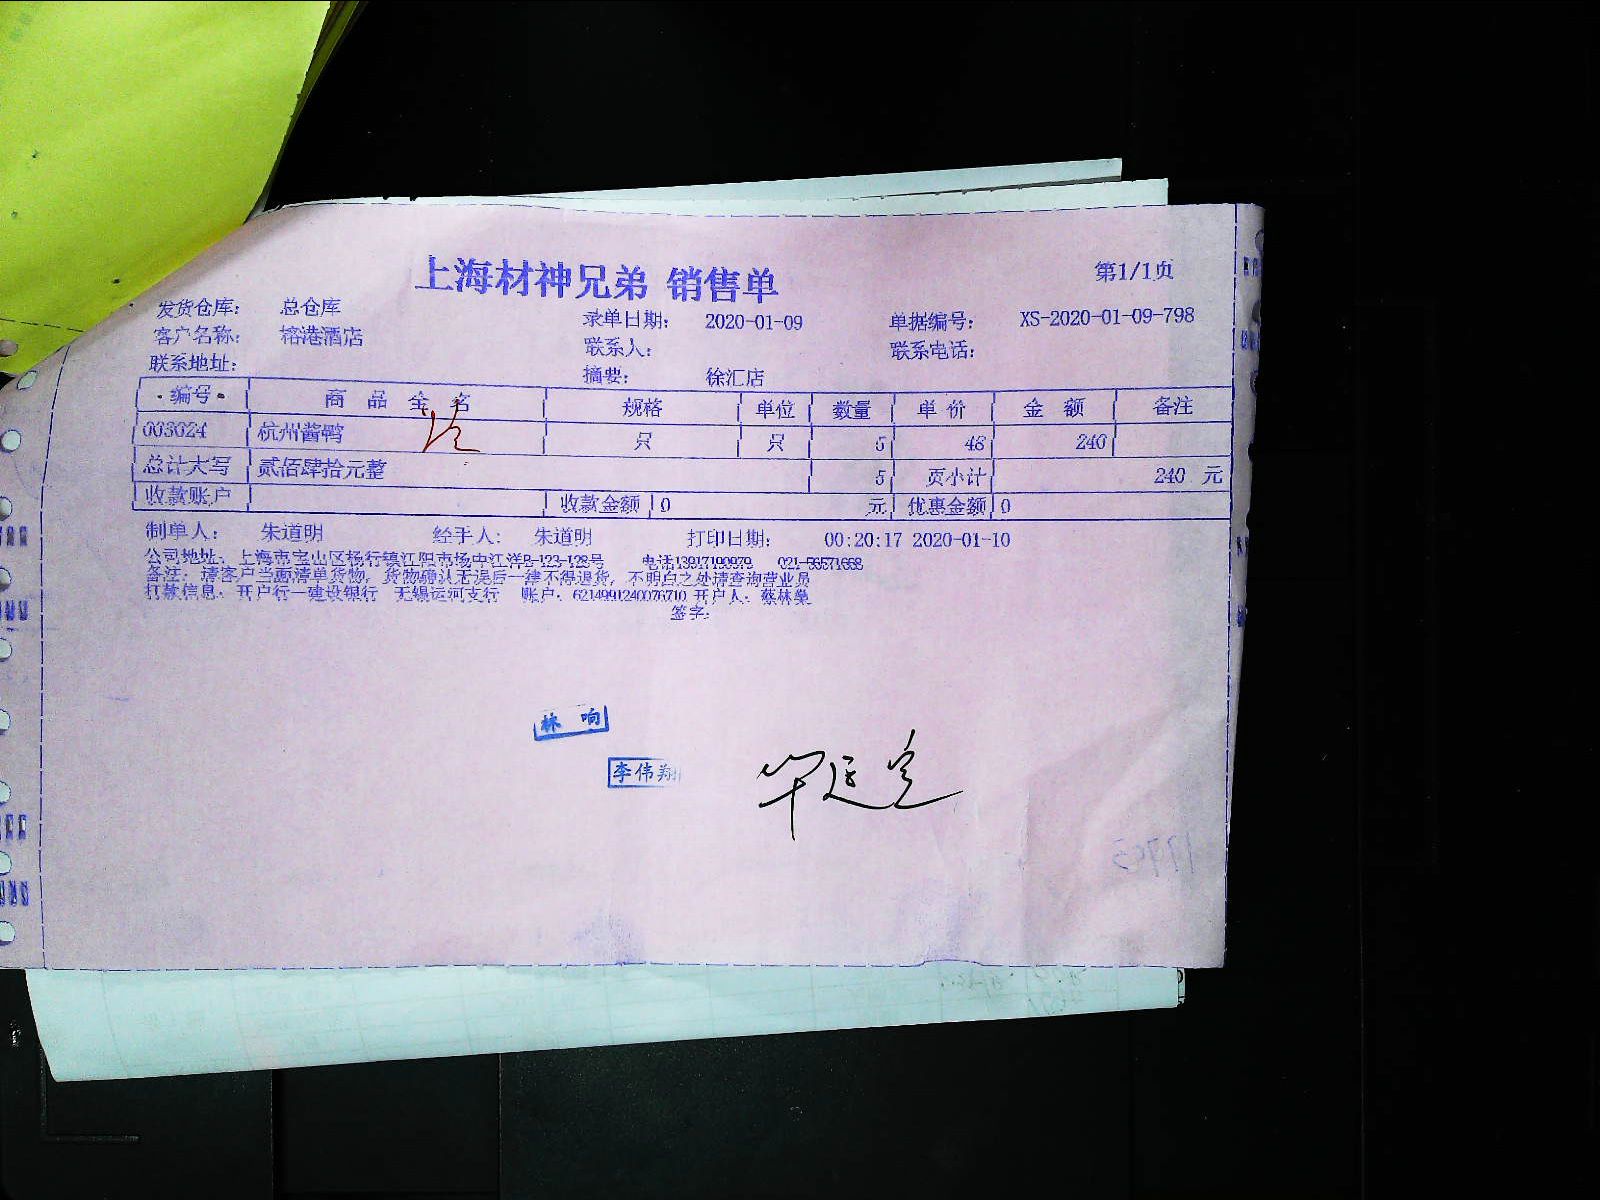 上海材神兄弟 销售单
第1/1页
发货仓库： 总仓库
录单日期： 2020-01-09 单据编号： XS-2020-01-09-798
客户名称： 榕港酒店
联系人： 联系电话：
联系地址：
摘要： 徐汇店
编号 商品全名 规格 单位 数量 单价 金额 备注
003024 杭州酱鸭 只 只 5 48 240
总计大写 贰佰肆拾元整 5 页小计 240 元
收款账户 收款金额 0 元 优惠金额 0
制单人： 朱道明 经手人： 朱道明 打印日期： 00:20:17 2020-01-10
公司地址：上海市宝山区杨行镇江阳市场中江洋B-123-128号 电话13917190979 021-56571668
备注：请客户当面清单货物，货物确认无误后一律不得退货，不明白之处请查询营业员
打款信息：开户行—建设银行 无锡运河支行 账户：6214991240076710 开户人：蔡林燊
签字：
林响
李伟翔